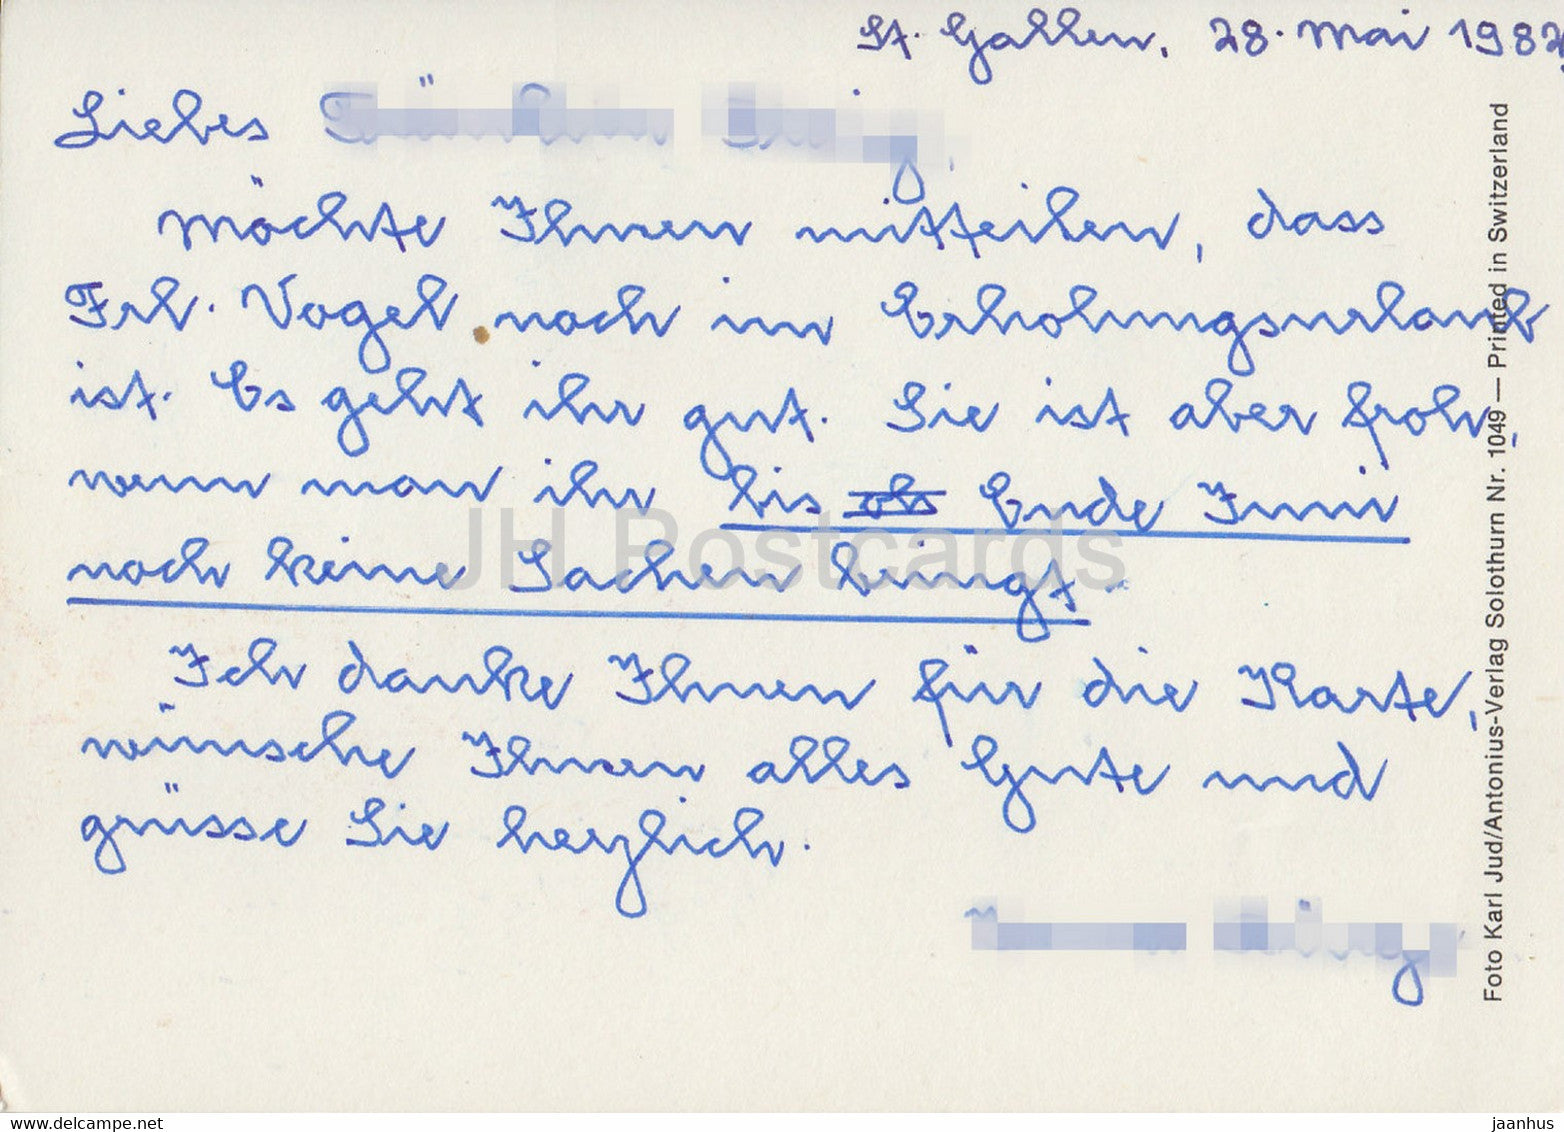 St. Gallen, 28. Mai 1982
Liebes
Möchte Ihnen mitteilen, dass
Frl. Vogel noch im Erholungsurlaub
ist. Es geht ihr gut. Sie ist aber froh,
wenn man ihr bis Ende Juni
noch keine Sachen bringt.
Ich danke Ihnen für die Karte,
wünsche Ihnen alles Gute und
grüsse Sie herzlich.
Foto Karl Jud/Antonius-Verlag Solothurn Nr. 1049 — Printed in Switzerland
JH Postcards
www.delcampe.net
jaanhus